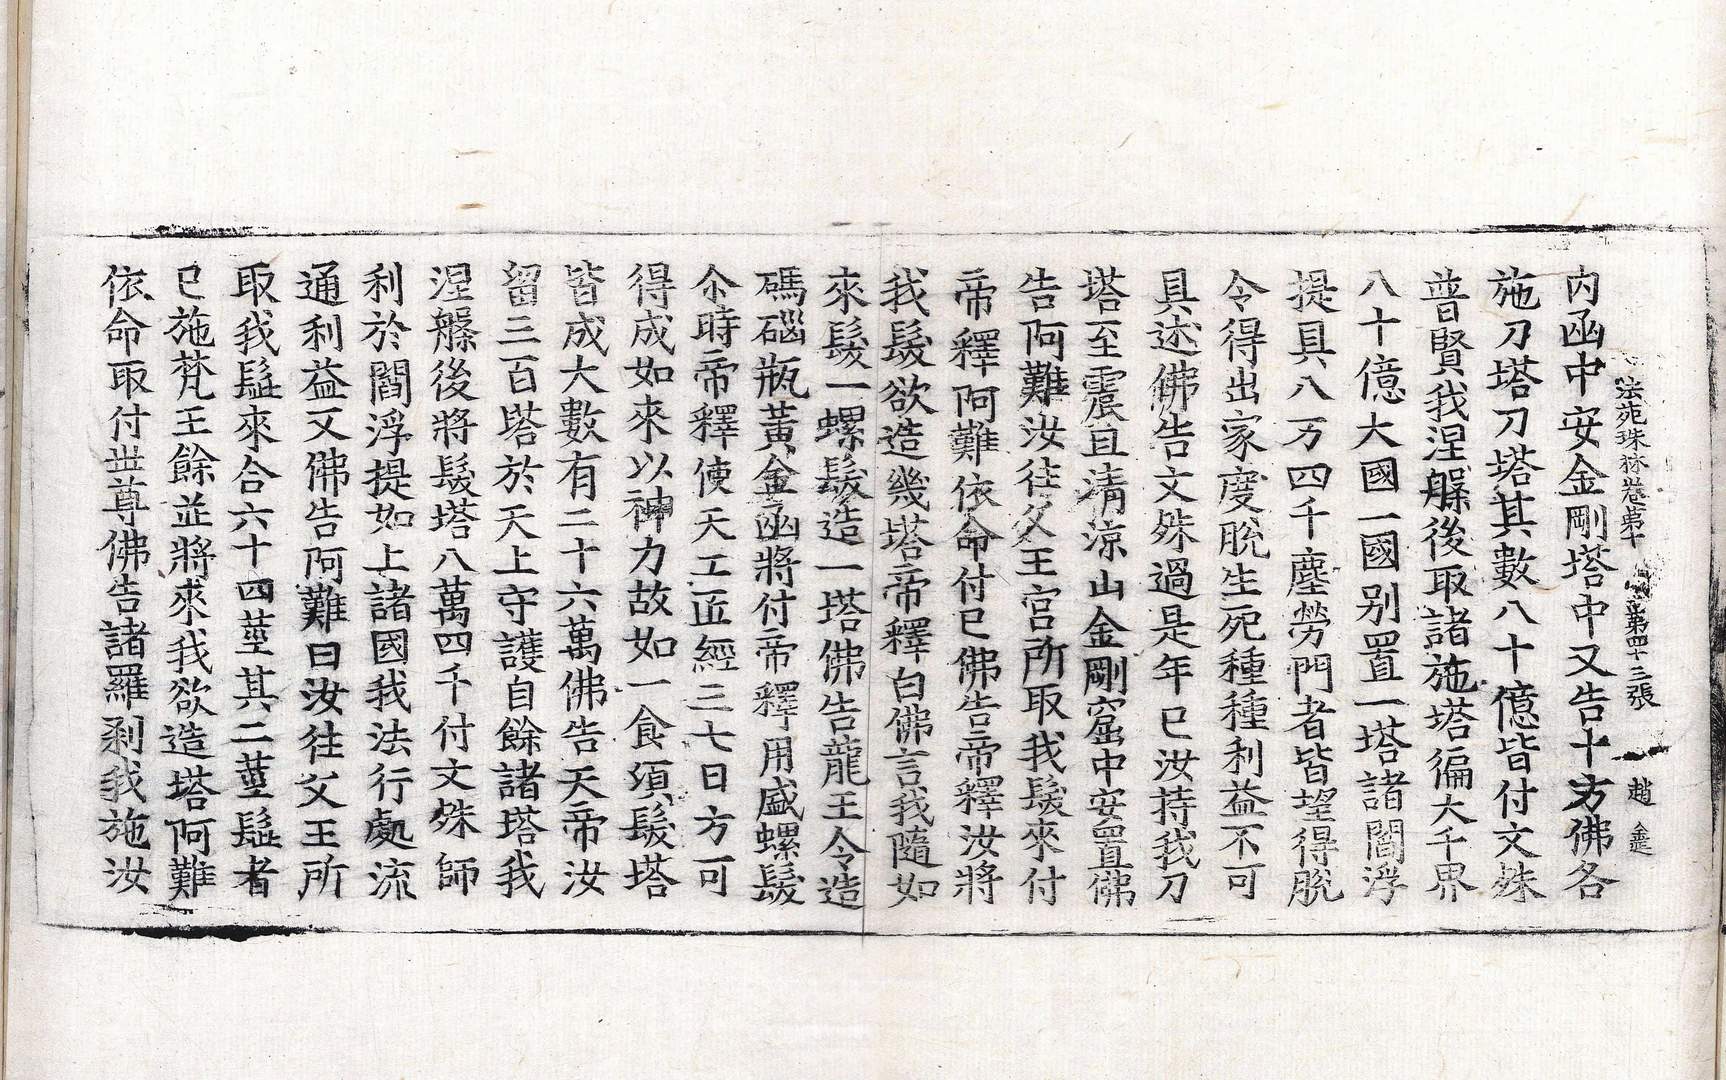 法苑珠林卷第十 第四十三張 趙
内函中安金剛塔中又告十方佛各
施刀塔刀塔其數八十億皆付文殊
普賢我涅槃後取諸施塔徧大千界
八十億大國一國别置一塔諸閻浮
提具八万四千塵勞門者皆望得脫
令得出家度脫生死種種利益不可
具述佛告文殊過是年已汝持我刀
塔至震旦清涼山金剛窟中安置佛
告阿難汝往父王宫所取我髮來付
帝釋阿難依命付已佛告帝釋汝將
我髮欲造幾塔帝釋白佛言我隨如
來髮一螺髮造一塔佛告龍王令造
碼碯瓶黃金函將付帝釋用盛螺髮
尒時帝釋使天工匠經三七日方可
得成如來以神力故如一食須髮塔
皆成大數有二十六萬佛告天帝汝
留三百塔於天上守護自餘諸塔我
涅槃後將髮塔八萬四千付文殊師
利於閻浮提如上諸國我法行處流
通利益又佛告阿難曰汝往父王所
取我髭來合六十四莖其二莖髭者
已施梵王餘並將來我欲造塔阿難
依命取付世尊佛告諸羅刹我施汝